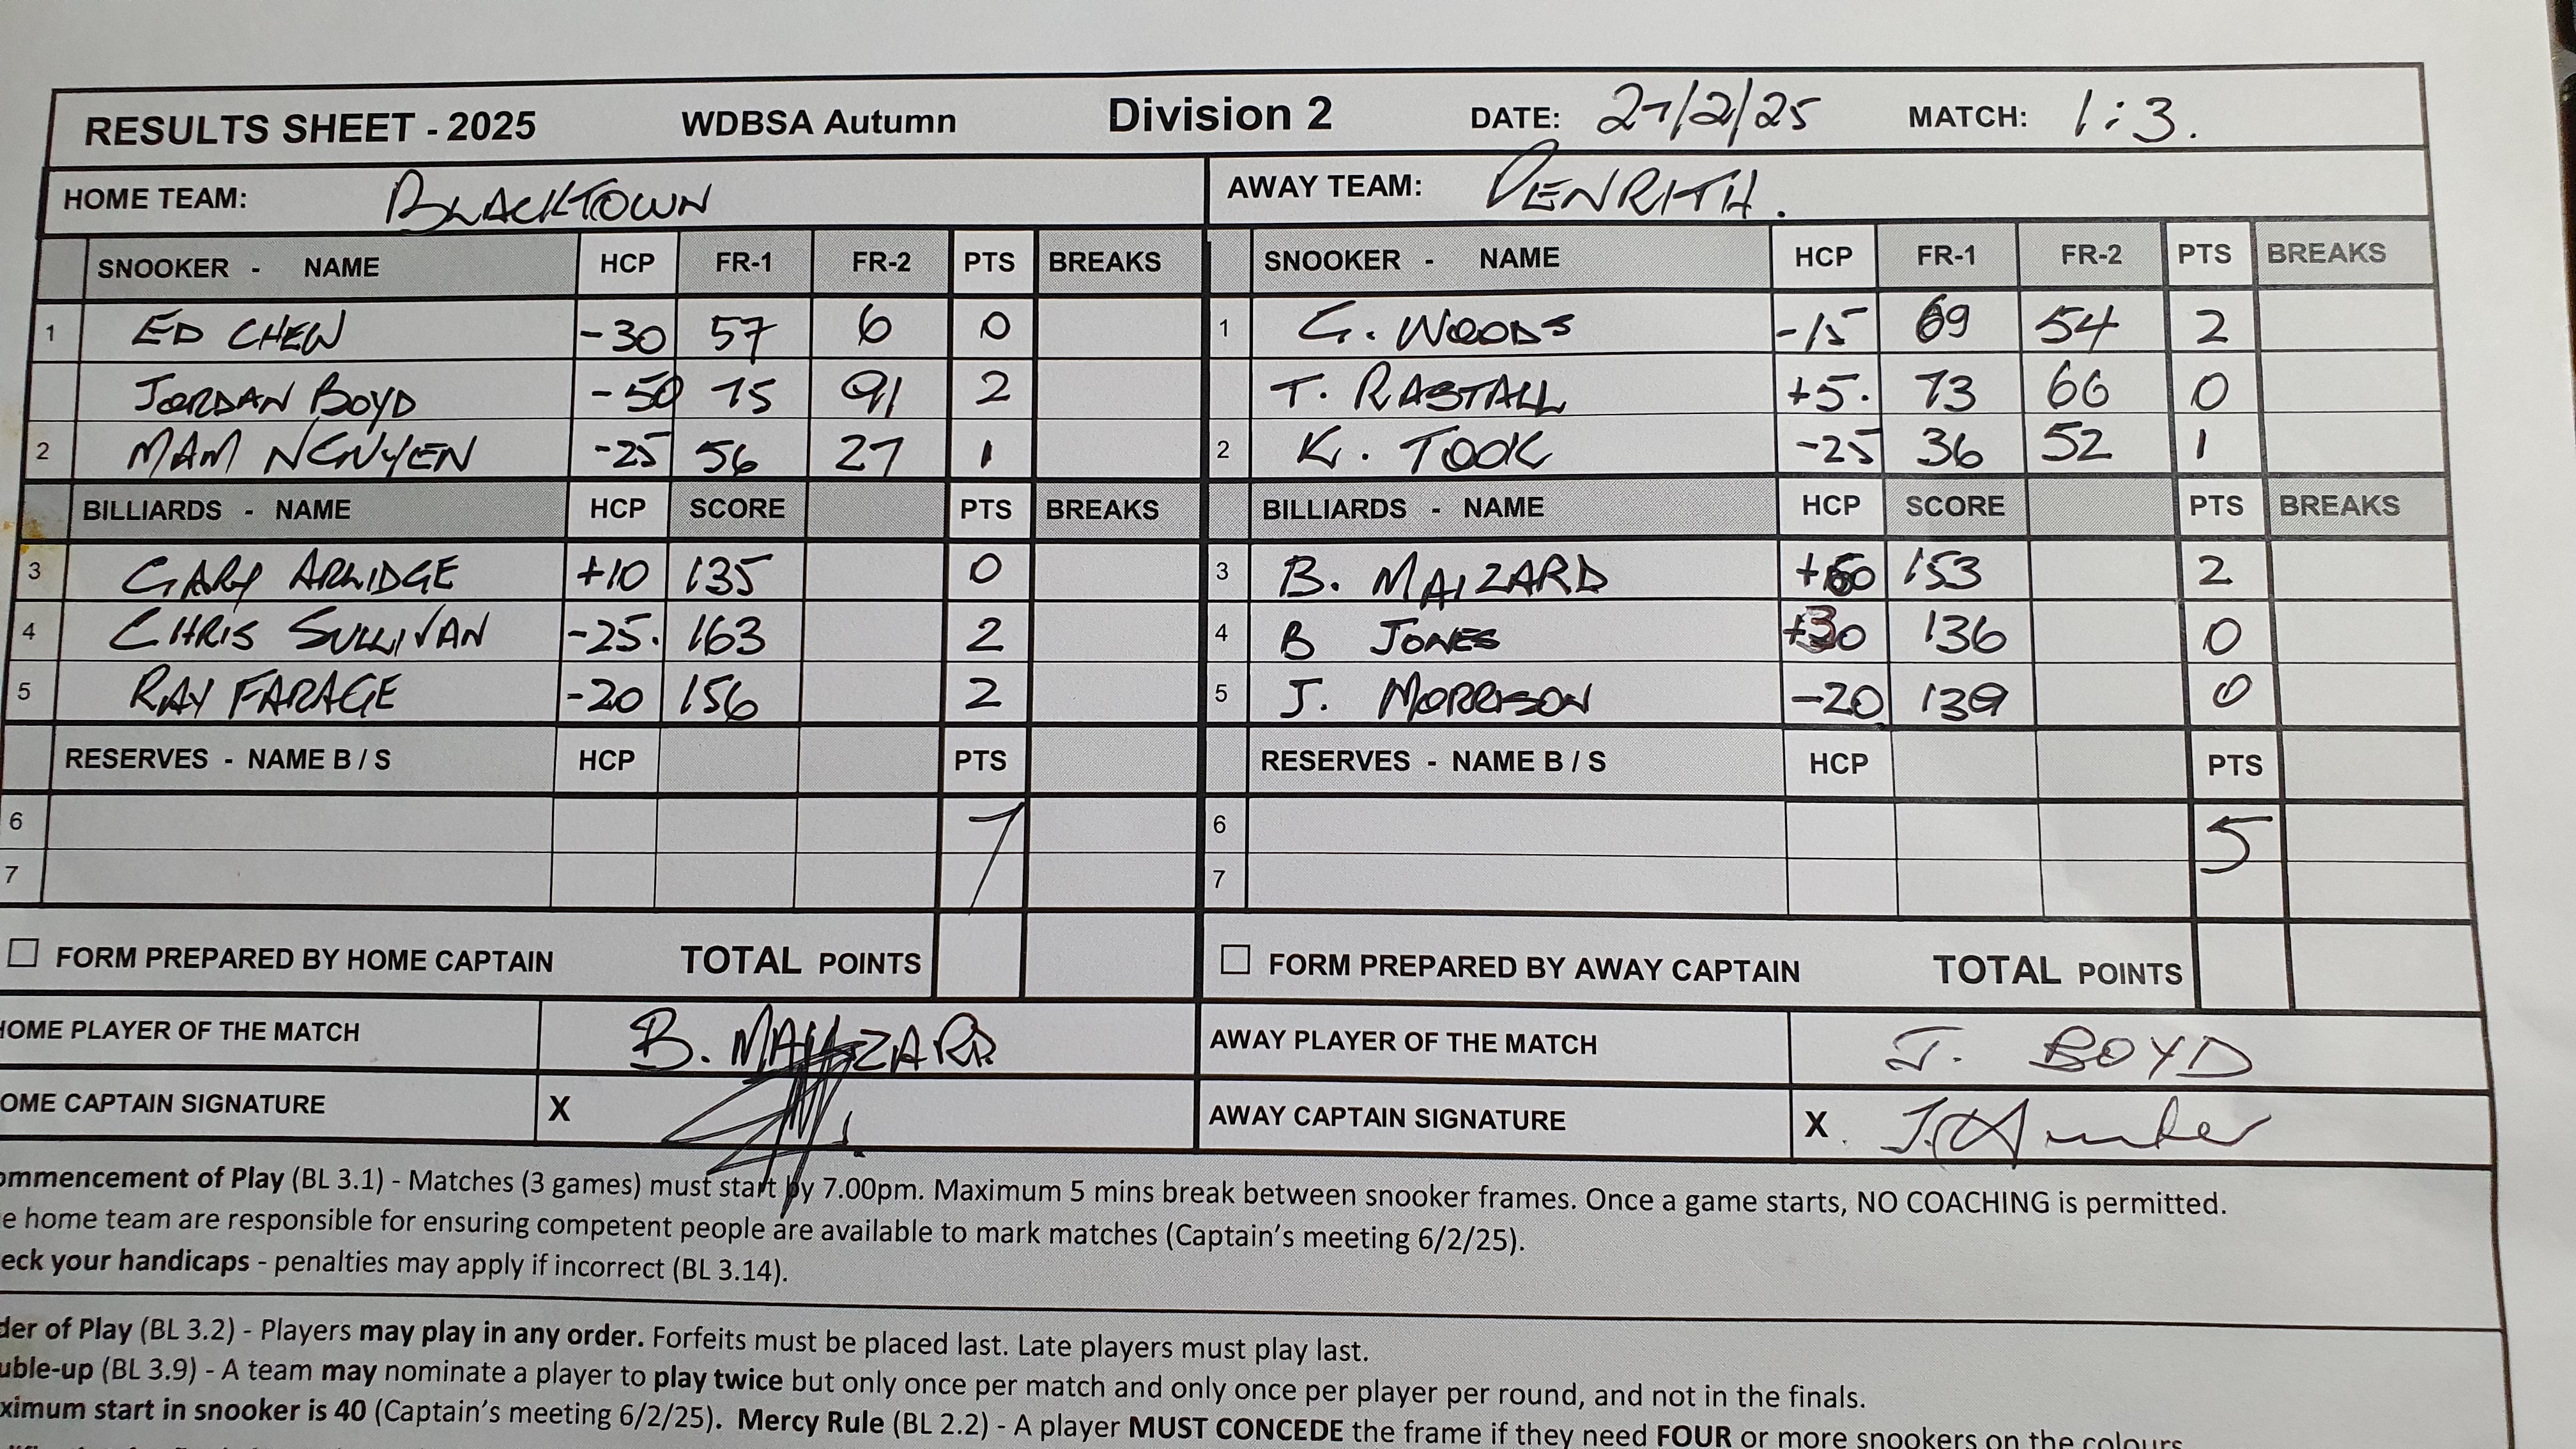 RESULTS SHEET - 2025 WDBSA Autumn Division 2 DATE: 27/2/25 MATCH: 1:3.
HOME TEAM: BLACKTOWN AWAY TEAM: PENRITH.
SNOOKER - NAME HCP FR-1 FR-2 PTS BREAKS SNOOKER - NAME HCP FR-1 FR-2 PTS BREAKS
1 ED CHEW -30 57 6 0 1 G. WOODS -15 69 54 2
JORDAN BOYD -50 75 91 2 T. RASTALL +5. 73 66 0
2 MAM NGUYEN -25 56 27 1 2 K. TOOK -25 36 52 1
BILLIARDS - NAME HCP SCORE PTS BREAKS BILLIARDS - NAME HCP SCORE PTS BREAKS
3 GARY ARLIDGE +10 135 0 3 B. MAIZARD 153 2
4 CHRIS SULLIVAN -25. 163 2 4 B JONES +30 136 0
5 RAY FARAGE -20 156 2 5 J. MORRISON -20 139 0
RESERVES - NAME B / S HCP PTS RESERVES - NAME B / S HCP PTS
6 7 6 5
7 7
FORM PREPARED BY HOME CAPTAIN TOTAL POINTS FORM PREPARED BY AWAY CAPTAIN TOTAL POINTS
HOME PLAYER OF THE MATCH B. AWAY PLAYER OF THE MATCH J. BOYD
OME CAPTAIN SIGNATURE X AWAY CAPTAIN SIGNATURE X
ommencement of Play (BL 3.1) - Matches (3 games) must start by 7.00pm. Maximum 5 mins break between snooker frames. Once a game starts, NO COACHING is permitted.
e home team are responsible for ensuring competent people are available to mark matches (Captain's meeting 6/2/25).
eck your handicaps - penalties may apply if incorrect (BL 3.14).
der of Play (BL 3.2) - Players may play in any order. Forfeits must be placed last. Late players must play last.
uble-up (BL 3.9) - A team may nominate a player to play twice but only once per match and only once per player per round, and not in the finals.
ximum start in snooker is 40 (Captain's meeting 6/2/25). Mercy Rule (BL 2.2) - A player MUST CONCEDE the frame if they need FOUR or more snookers on the colours